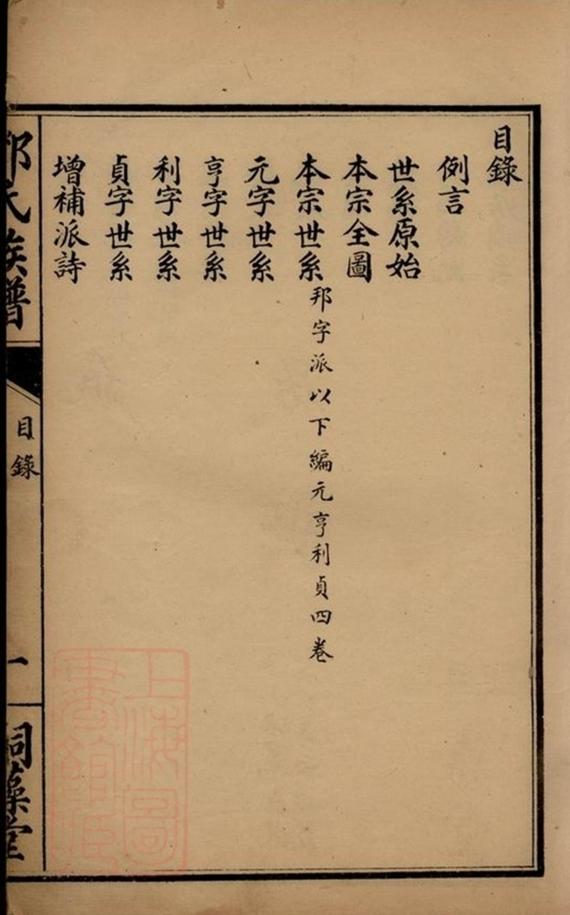 目錄
例言
世系原始
本宗全圖
本宗世系 邦字派以下編元亨利貞四卷
元字世系
亨字世系
利字世系
貞字世系
增補派詩
氏族譜
目錄
一
藻堂
上海圖
書館藏